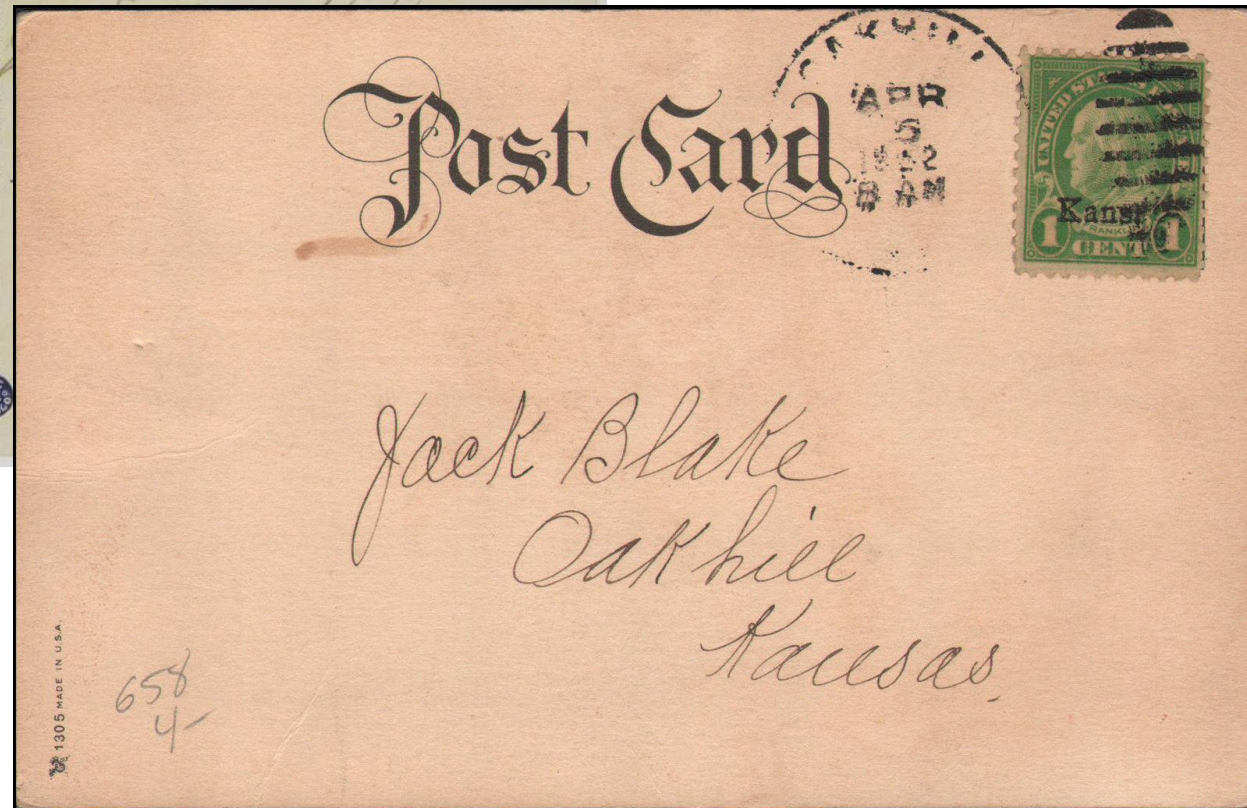 Post Card
OAKHILL
APR
5
8 AM
UNITED STATES
Kans.
FRANKLIN
1 CENT 1
Jack Blake
Oakhill
Kansas.
658
4-
1305 MADE IN U.S.A.